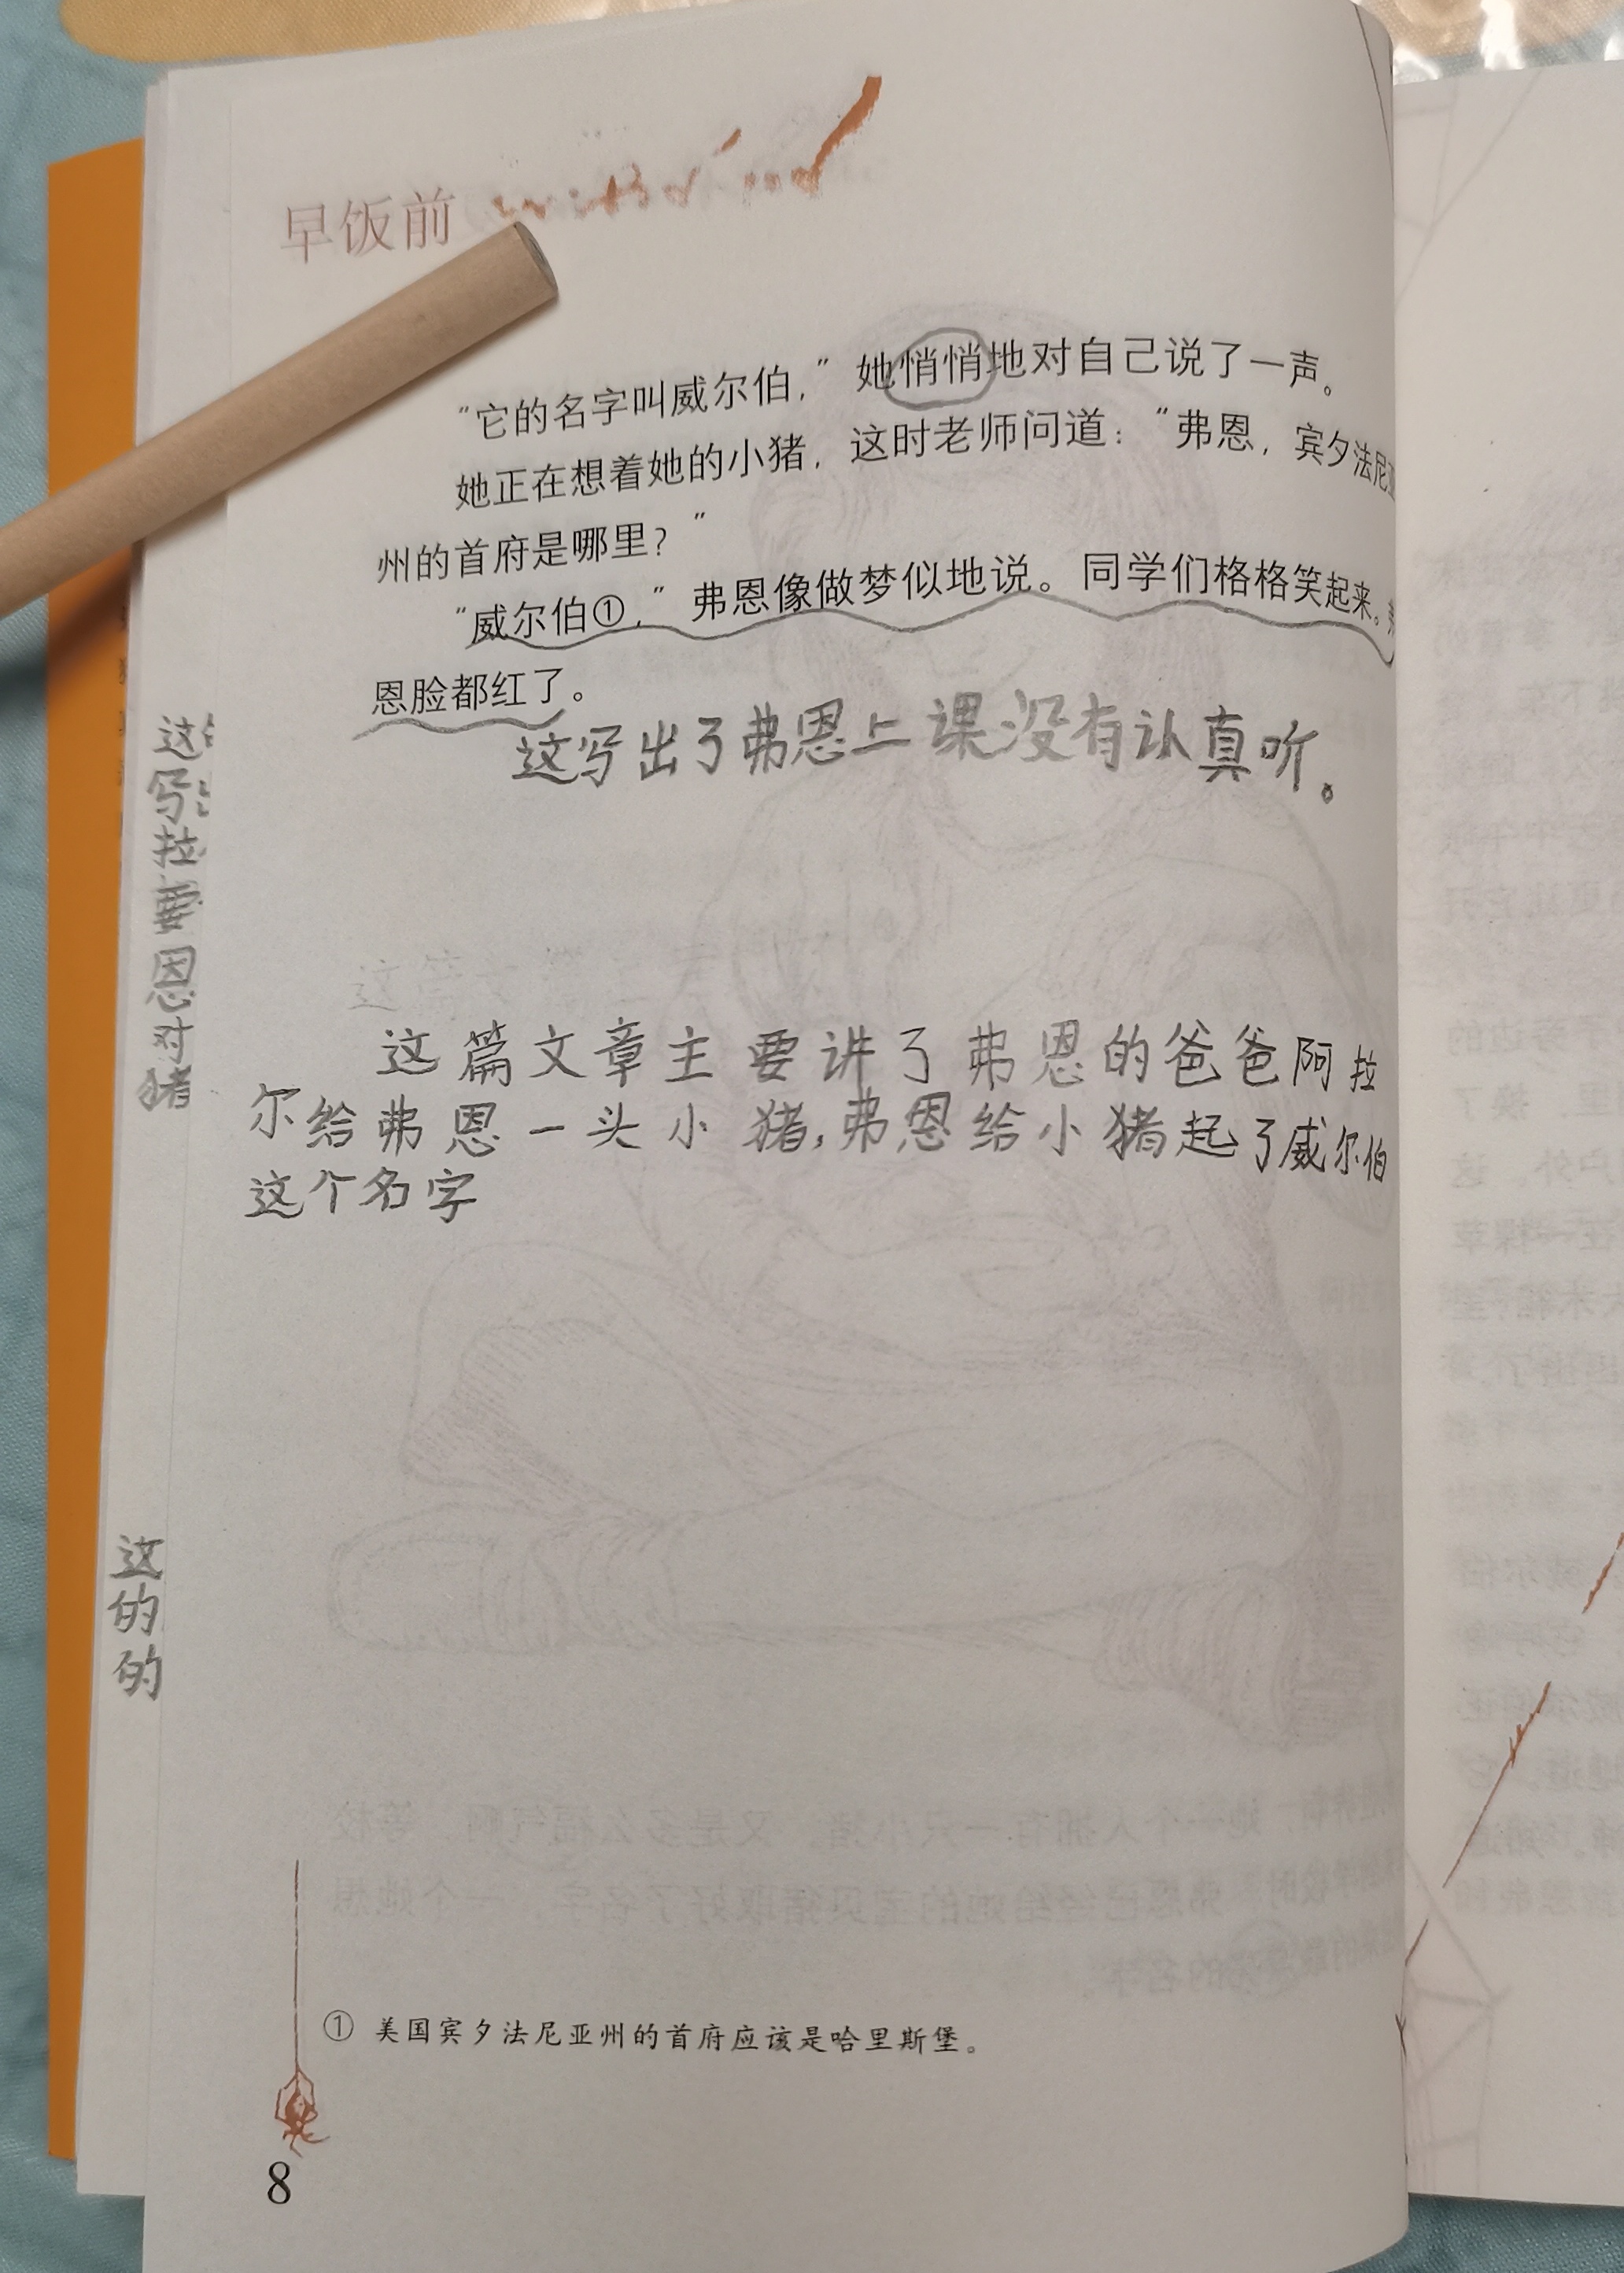 早饭前
“它的名字叫威尔伯，”她悄悄地对自己说了一声。
她正在想着她的小猪，这时老师问道：“弗恩，宾夕法尼亚
州的首府是哪里？”
“威尔伯①，”弗恩像做梦似地说。同学们格格笑起来。弗
恩脸都红了。
这写出了弗恩上课没有认真听。
这篇文章主要讲了弗恩的爸爸阿拉
尔给弗恩一头小猪,弗恩给小猪起了威尔伯
这个名字
① 美国宾夕法尼亚州的首府应该是哈里斯堡。
8
这
写
拉
要
恩
对
猪
这
的
的